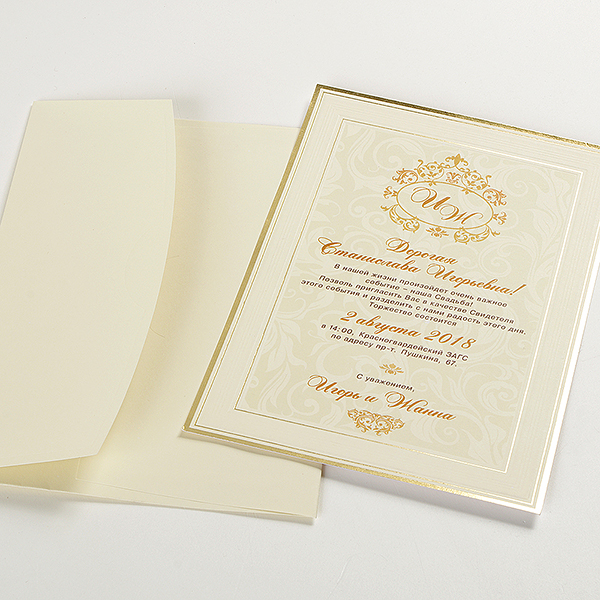 ИЖ
Дорогая
Станислава Игорьевна!
В нашей жизни произойдет очень важное
событие – наша Свадьба!
Позволь пригласить Вас в качестве Свидетеля
этого события и разделить с нами радость этого дня.
Торжество состоится
2 августа 2018
в 14:00, Красногвардейский ЗАГС
по адресу пр-т. Пушкина, 67.
С уважением,
Игорь и Жанна